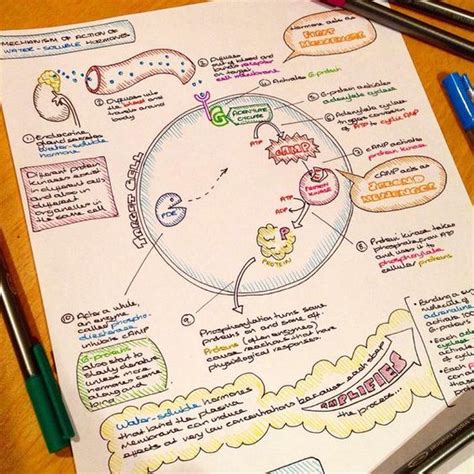 MECHANISM OF ACTION OF
WATER-SOLUBLE HORMONES
Hormone acts as
FIRST
MESSENGER
① Endocrine
gland
water-soluble
hormone
② Diffuses into
the blood and
travels around
body
③ Diffuses
out of blood and
binds receptor
on target
cell membrane
④ Activates G-protein
⑤ G-protein activates
adenylate cyclase
⑥ Adenylate cyclase
conversion
of ATP to cyclic AMP
⑦ cAMP activates
protein kinase
cAMP acts as
SECOND
MESSENGER
⑧ Protein kinase takes
phosphate from ATP
and uses it to
phosphorylate
cellular proteins
⑨
Phosphorylation turns some
proteins on and some off.
Proteins (often enzymes)
cause reactions that have
physiological responses.
⑩ After a while
an enzyme
called phospho-
diesterase
inhibits cAMP
G-proteins
also start to
slowly
unless more
hormones come
along and
bind
Different protein
kinases exist
in different cells
and also in
different
organelles in
the same cell
TARGET CELL
G
ADENYLATE
CYCLASE
ATP
cAMP
ATP
ADP
PROTEIN
KINASE
PDE
P
PROTEIN
Water-soluble hormones
that bind the plasma
membrane can induce
effects at very low concentrations because each step
AMPLIFIES
the process...
Binding
adrenaline
activates 100
G-protein
Each
cyclase
activates
Each p